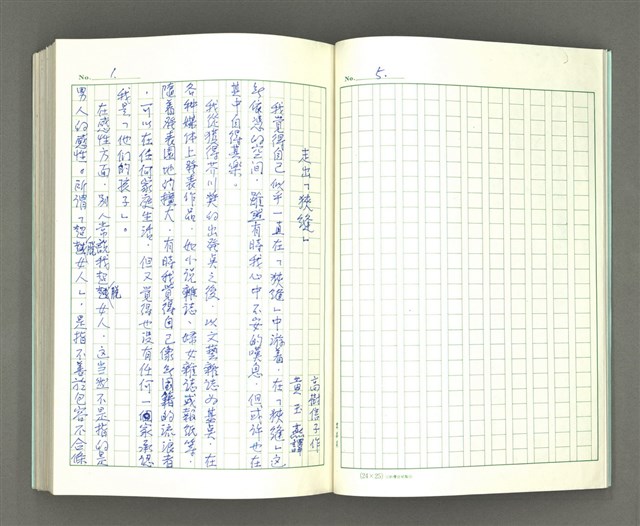 No. 5.
(24×25)
No. 1.
走出「狹縫」
高樹信子作
黃玉燕譯
我覺得自己似乎一直在「狹縫」中游着。在「狹縫」這
種依憑的空間，雖然有時我心中不安的嘆息，但或許也在
其中自得其樂。
我從獲得芥川獎的出發點之後，以文藝雜誌為基點，在
各種媒体上發表作品，如小說雜誌、婦女雜誌或報紙等，
隨着發表園地的擴大，有時我覺得自己像無國籍的流浪者
，可以在任何家庭生活，但又覺得也沒有任何一個家承認
我是「他們的孩子」。
在感性方面，別人常說我超脫女人，這当然不是指的是
男人的感性。所謂「超脫女人」，是指不善於包容不合條